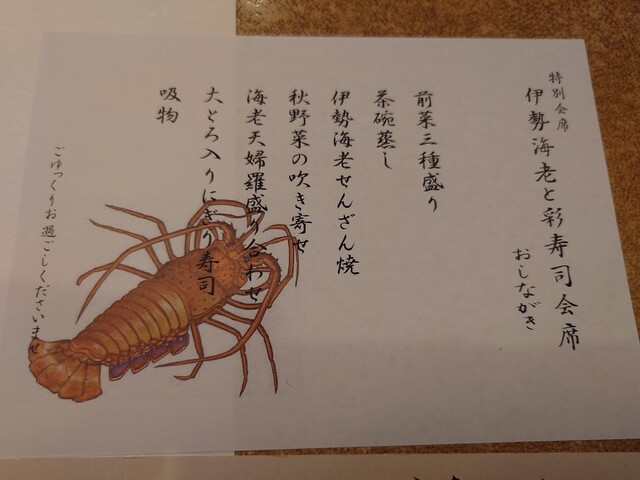 特別会席
伊勢海老と彩寿司会席
おしながき
前菜三種盛り
茶碗蒸し
伊勢海老せんざん焼
秋野菜の吹き寄せ
海老天婦羅盛り合わせ
大とろ入りにぎり寿司
吸物
ごゆっくりお過ごしくださいませ